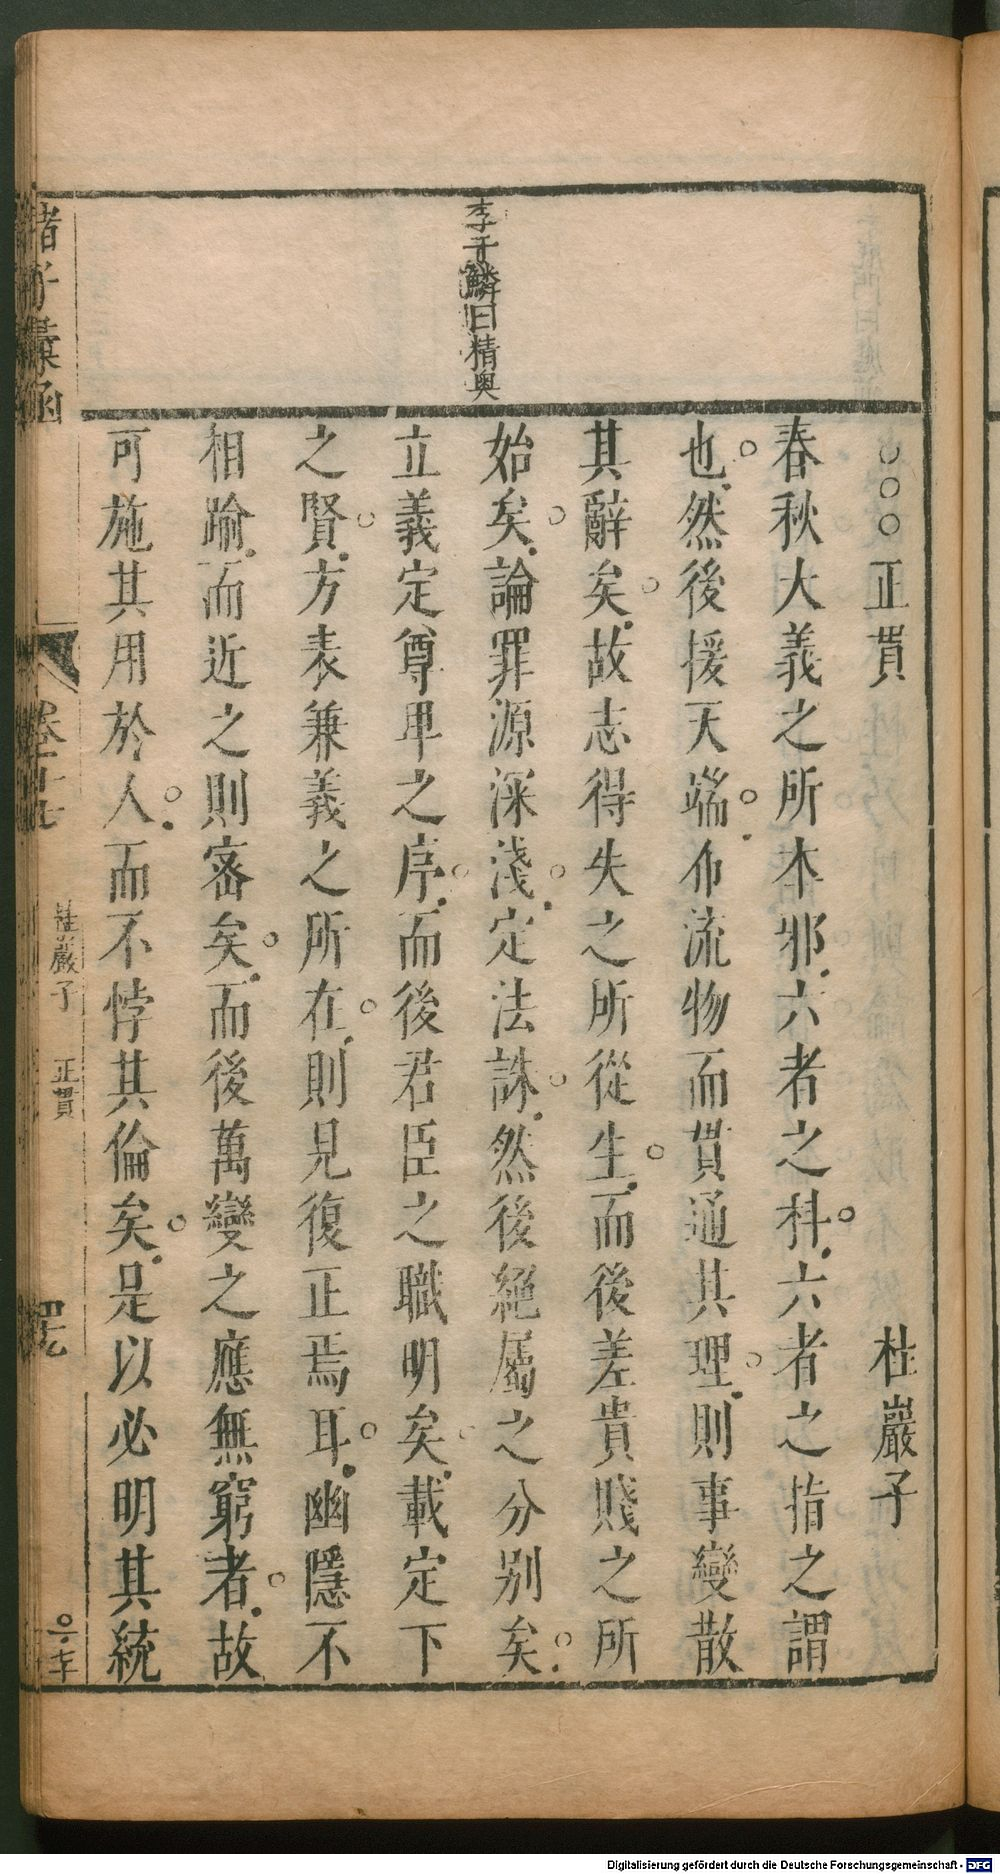 李于鱗曰精奧
○○○正貫 桂巖子
春秋大義之所本邪六者之科六者之指之謂
也然後援天端布流物而貫通其理則事變散
其辭矣故志得失之所從生而後差貴賤之所
始矣論罪源深淺定法誅然後絕屬之分别矣
立義定尊卑之序而後君臣之職明矣載定下
之賢方表兼義之所在則見復正焉耳幽隱不
相踰而近之則密矣而後萬變之應無窮者故
可施其用於人而不悖其倫矣是以必明其統
諸子彙函
卷二十七
桂巖子 正貫
Digitalisierung gefördert durch die Deutsche Forschungsgemeinschaft - DFG